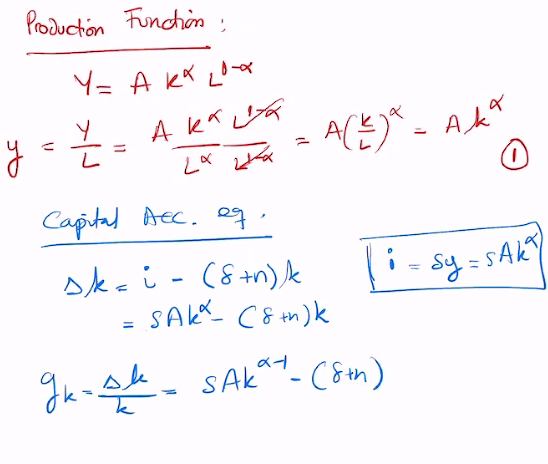 Production Function :
Y = A K^α L^(1-α)
y = Y/L = (A K^α L^(1-α))/(L^α L^(1-α)) = A(K/L)^α = A k^α ①
Capital Acc. eq.
Δk = i - (δ+n)k
i = sy = sAk^α
= sAk^α - (δ+n)k
g_k = Δk/k = sAk^(α-1) - (δ+n)